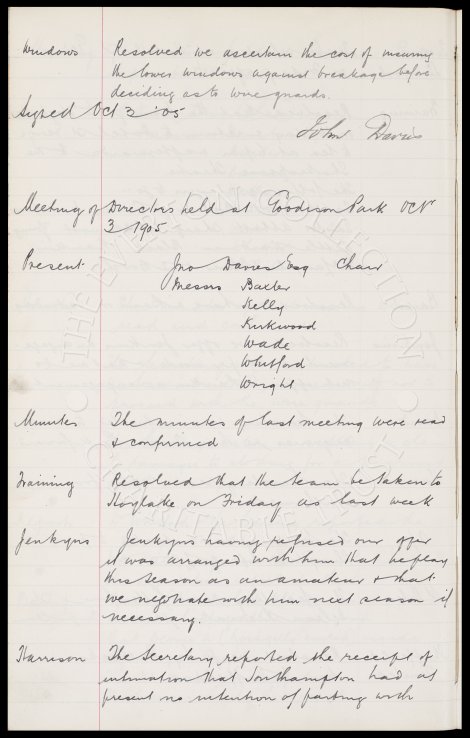 Windows Resolved we ascertain the cost of insuring
the lower windows against breakage before
deciding as to wire guards.
Signed Oct 3 '05
John Davies
Meeting of Directors held at Goodison Park Octr
3/1905
Present. Jno Davies Esq Chair
Messrs Baxter
Kelly
Kirkwood
Wade
Whitford
Wright
Minutes The minutes of last meeting were read
& confirmed
Training Resolved that the team be taken to
Hoylake on Friday as last week
Jenkyns Jenkyns having refused our offer
it was arranged with him that he play
this season as an amateur & that
we negotiate with him next season if
necessary.
Harrison The Secretary reported the receipt of
intimation that Southampton had at
present no intention of parting with
THE EVERTON COLLECTION
CHARITABLE TRUST